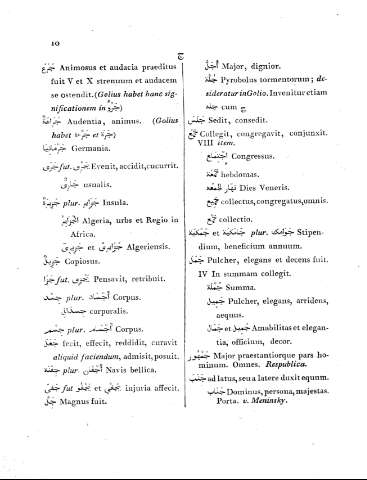 10
ج
Animosus et audacia praeditus
fuit V et X strenuum et audacem
se ostendit. (Golius habet hanc sig-
nificationem in جرؤ)
جراءة Audentia, animus. (Golius
habet et جرؤ)
جرمانيا Germania.
جرى fut. يجرى Evenit, accidit, cucurrit.
جارى usualis.
جزيرة plur. جزاير Insula.
الجزاير Algeria, urbs et Regio in
Africa.
جزيرى et جزايرى Algeriensis.
جزيل Copiosus.
جزا fut. يجزى Pensavit, retribuit.
جسد plur. أجساد Corpus.
corporalis.
جسم plur. أجسام Corpus.
جعل fecit, effecit, reddidit, curavit
aliquid faciendum, admisit, posuit.
جفن plur. أجفان Navis bellica.
جفى fut يجفو et يجفى injuria affecit.
جل Magnus fuit.
أجل Major, dignior.
جلة Pyrobolus tormentorum; de-
sideratur in Golio. Invenitur etiam
جله cum ج
جلس Sedit, consedit.
جمع Collegit, congregavit, conjunxit.
VIII item.
اجتماع Congressus.
جمعة hebdomas.
نهار الجمعه Dies Veneris.
جميع collectus, congregatus, omnis.
جمع collectio.
جمكية et جامكية plur. جوامك Stipen-
dium, beneficium annuum.
جمل Pulcher, elegans et decens fuit.
IV In summam collegit.
جملة Summa.
جميل Pulcher, elegans, arridens,
aequus.
جمال et جميل Amabilitas et elegan-
tia, officium, decor.
جمهور Major praestantiorque pars ho-
minum. Omnes. Respublica.
جنب ad latus, seu a latere duxit equum.
جناب Dominus, persona, majestas.
Porta. v. Meninsky.